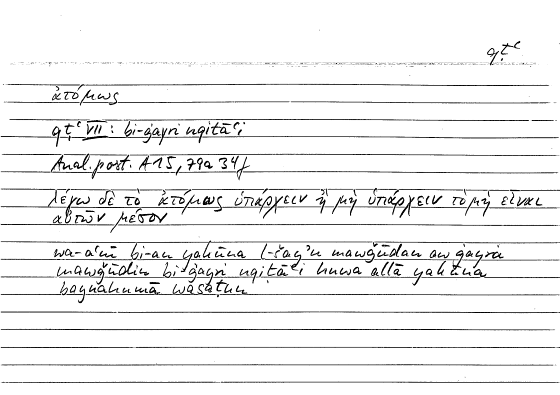 qṭʿ
ἀτόμως
qṭʿ VII: bi-ġayri nqiṭāʿi
Anal. post. A 15, 79a 34f
λέγω δὲ τὸ ἀτόμως ὑπάρχειν ἢ μὴ ὑπάρχειν τὸ μὴ εἶναι
αὐτῶν μέσον
wa-aʿnī bi-an yakūna l-šayʾu mawǧūdan aw ġayra
mawǧūdin bi-ġayri nqiṭāʿi huwa allā yakūna
baynahumā wāsaṭun